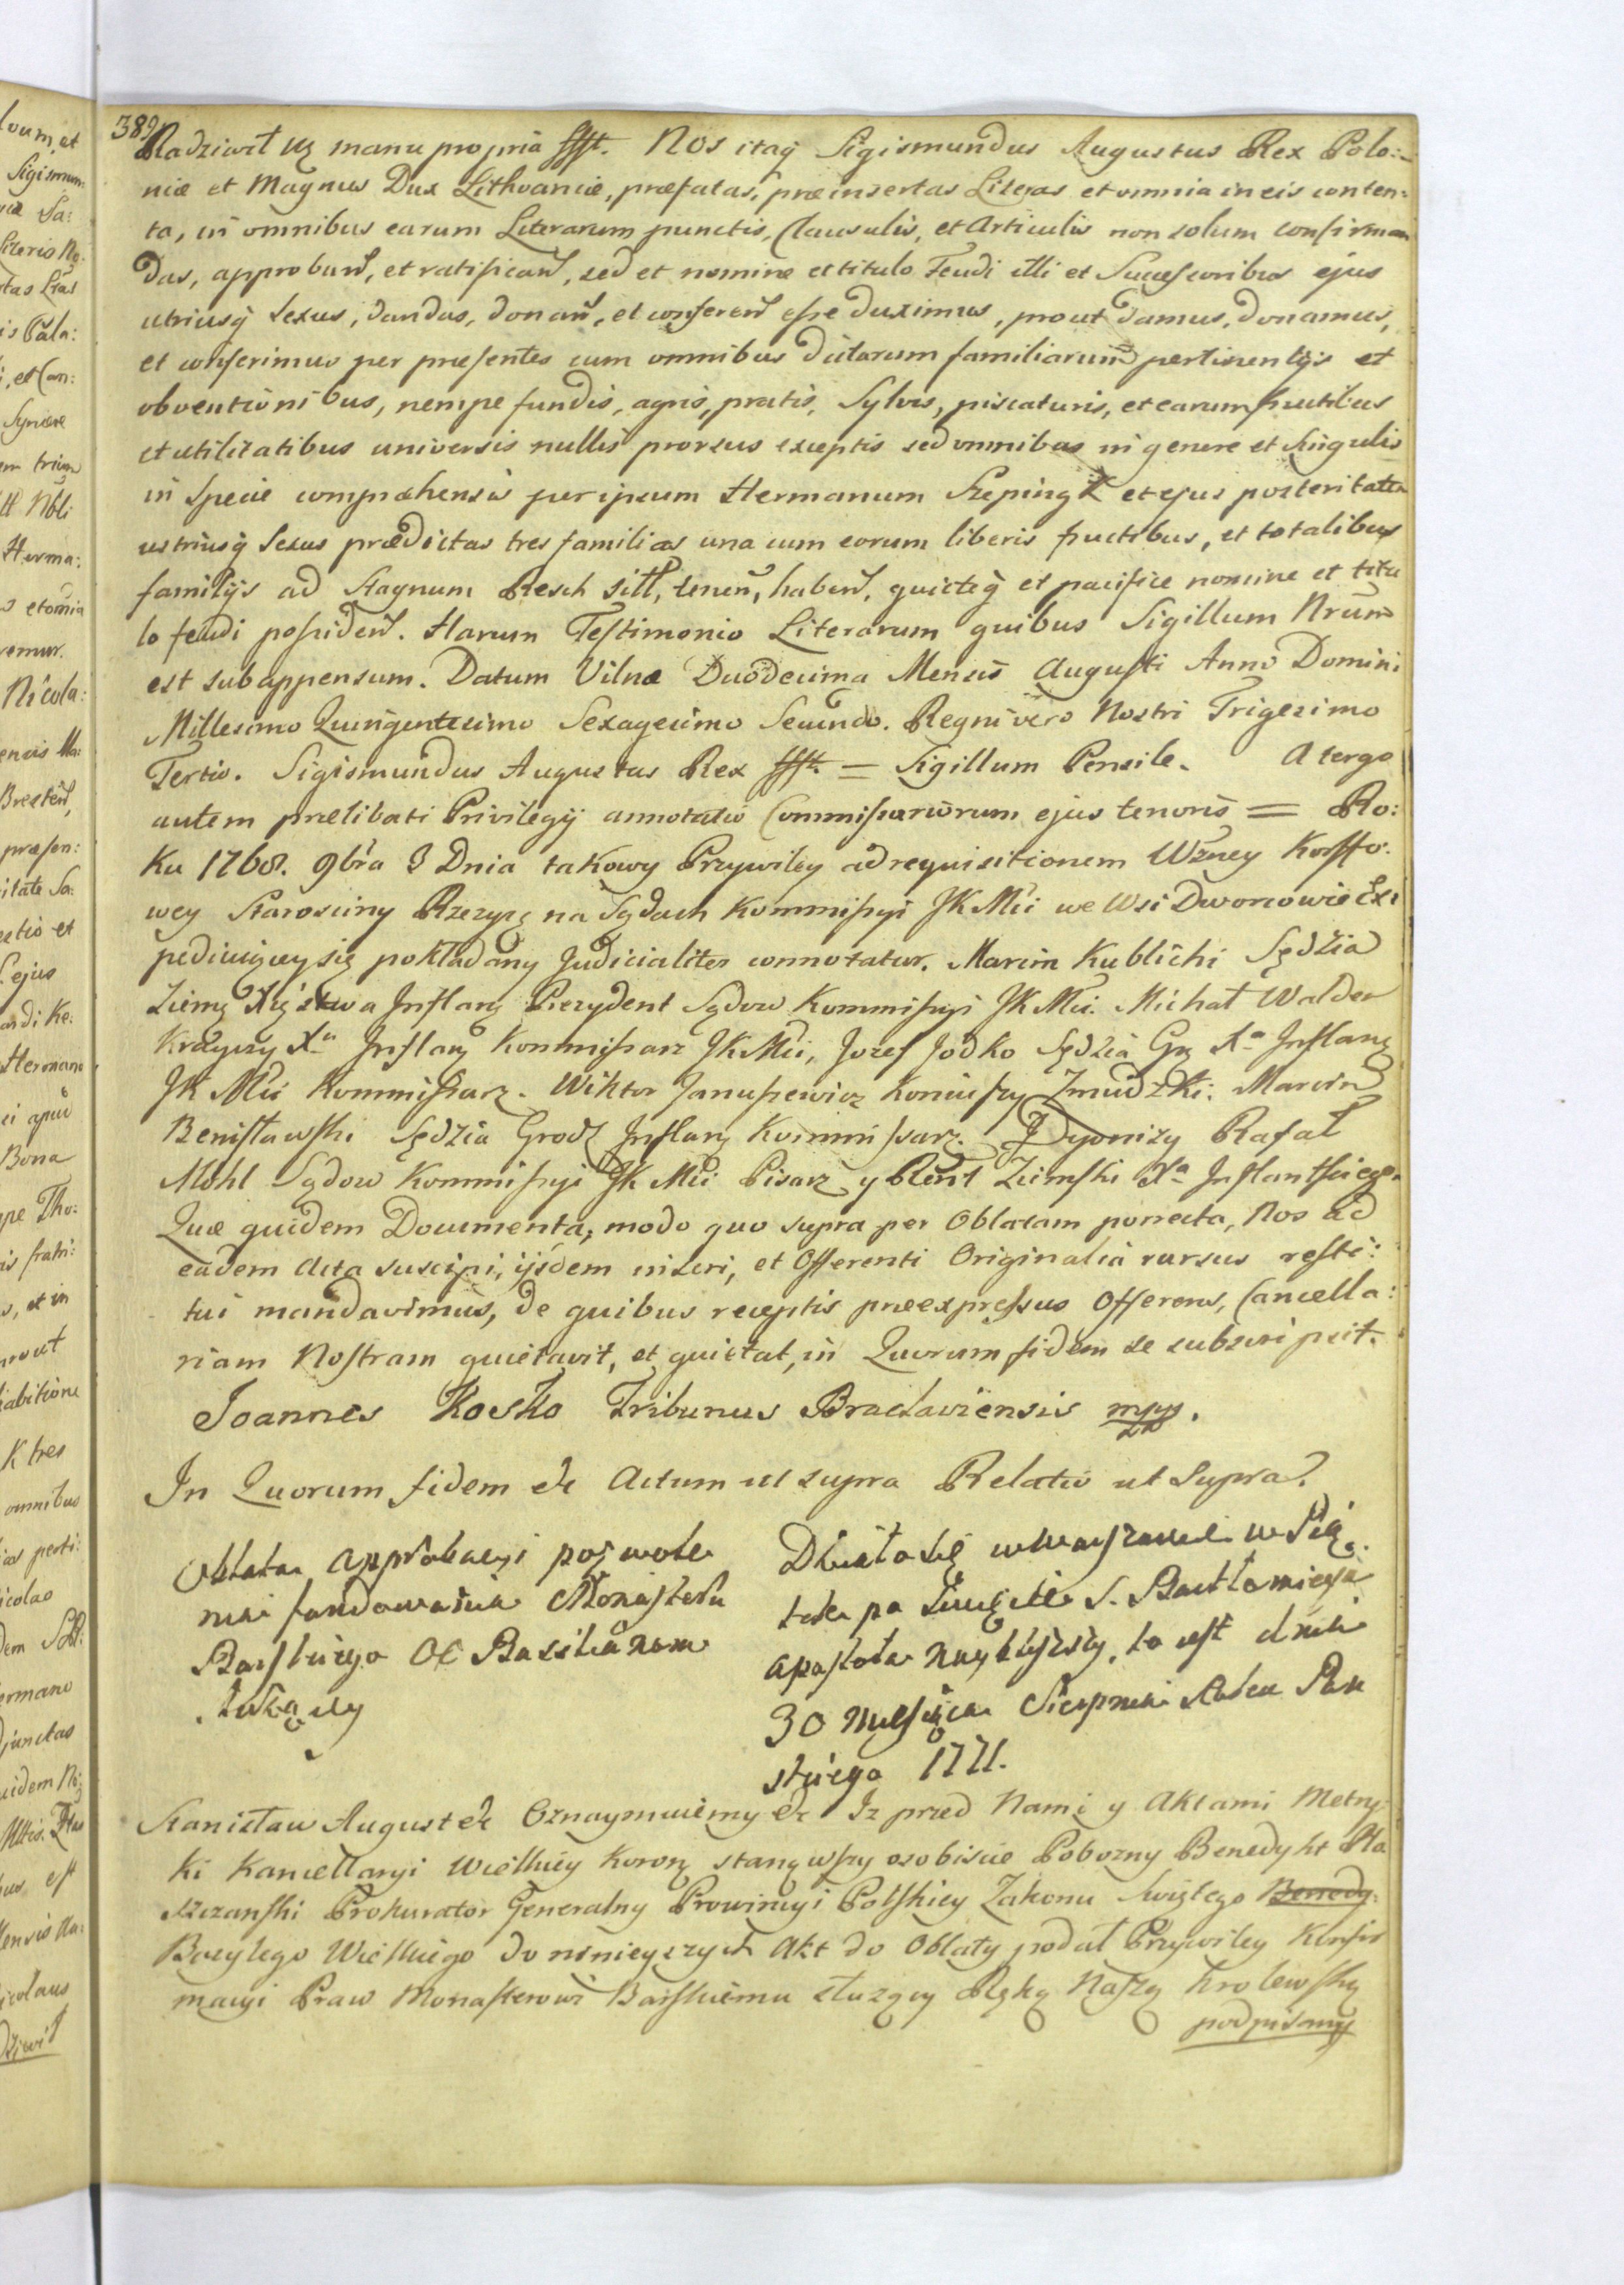 389
Radziwił mq manu propria ssst. Nos itaq Sigismundus Augustus Rex Polo:
niæ et Magnus Dux Lithvaniæ, præfatas, præinsertas Literas et omnia in eis conten:
ta, in omnibus earum Literarum punctis, Clausulis, et Articulis non solum confirman
das, approband, et ratificand, sed et nomine et titulo Feudi illi et Successoribus ejus
utriusq Sexus, dandas, donan, et conferen esse duximus, prout damus, donamus,
et conferimus per præsentes cum omnibus dictarum familiarum pertinentijs et
obventionibus, nempe fundis, agris, pratis, Sylvis, piscaturis, et earum fructibus
et utilitatibus universis nullis prorsus exceptis sed omnibus in genere et Singulis
in Specie compræhensis per ipsum Hermanum Szepingk et ejus posteritatem
ustriusq Sexus prædictas tres familias una cum eorum liberis fructibus, et totalibus
familijs ad Stagnum Resch sitt, tenen, habend, quieteq et pacifice nomine et titu
lo feudi possidend. Harum Testimonio Literarum quibus Sigillum Nrum
est subappensum. Datum Vilnæ Duodecima Mensis Augusti Anno Domini
Millesimo Quingentesimo Sexagesimo Secundo. Regni vero Nostri Trigesimo
Tertio. Sigismundus Augustus Rex ssst. = Sigillum Pensile. A tergo
autem prælibati Privilegij annotatio Commissariorum ejus tenoris = Ro:
ku 1768. 9bra 3 Dnia takowy Przywiley ad requisitionem Wżney Korffo:
wey Starosciny Rzezyc na Sądach Kommissyi JKMci we Wsi Dworcowie Ex
pediuiącey się pokładany Judicialiter connotatur. Marcin Kublicki Sędzia
Ziemq Xięstwa Inflanq Prezydent Sądow Kommissyi JKMci. Michał Walden
Krayczy Xa Inflanq Kommissarz JKMci, Jozef Jodko Sędzia Gq Xa Inflanq
JK Mci Kommissarz. Wiktor Januszewicz Koniuszy Zmudzki. Marcin
Benisławski Sędzia Grodz Inflanq Kommissarz. Dyonizy Rafał
Mohl Sądow Kommissyi JK Mci Pisarz y Rent Ziemski Xa Inflantskiego.
Quæ quidem Documenta, modo quo supra per Oblatam porrecta, Nos ad
eadem Acta suscipi, ijsdem inseri, et Offerenti Originalia rursus resti:
tui mandavimus, de quibus receptis præexpressus Offerens, Cancella:
riam Nostram quietavit, et quietat, in Quorum fidem se subscripsit.
Joannes Kosko Tribunus Braclaviensis mpp.
In Quorum fidem &c Actum ut supra Relatio ut Supra.
Oblata Approbacyi pozwole
nia fundowania Monasteru
Barskiego OO Bazilianom
służący
Działo się w Warszawie w Pią
tek po Swięcie S. Bartłomieja
Apostoła naybliższy, to iest dnia
30 Miesiąca Sierpnia Roku Pan
skiego 1771.
Stanisław August &c Oznaymuiemy &c Iz przed Nami y Aktami Metry
ki Kancellaryi Wielkiey Koronq stanąwszy osobiscie Pobozny Benedykt Ha
szczanski Prokurator Generalny Prowincyi Polskiey Zakonu Swiętego Benedy:
Bazylego Wielkiego do ninieyszych Akt do Oblaty podał Przywiley Konfir
macyi Praw Monasterowi Barskiemu służący Ręką Naszą Krolewską
podpisany